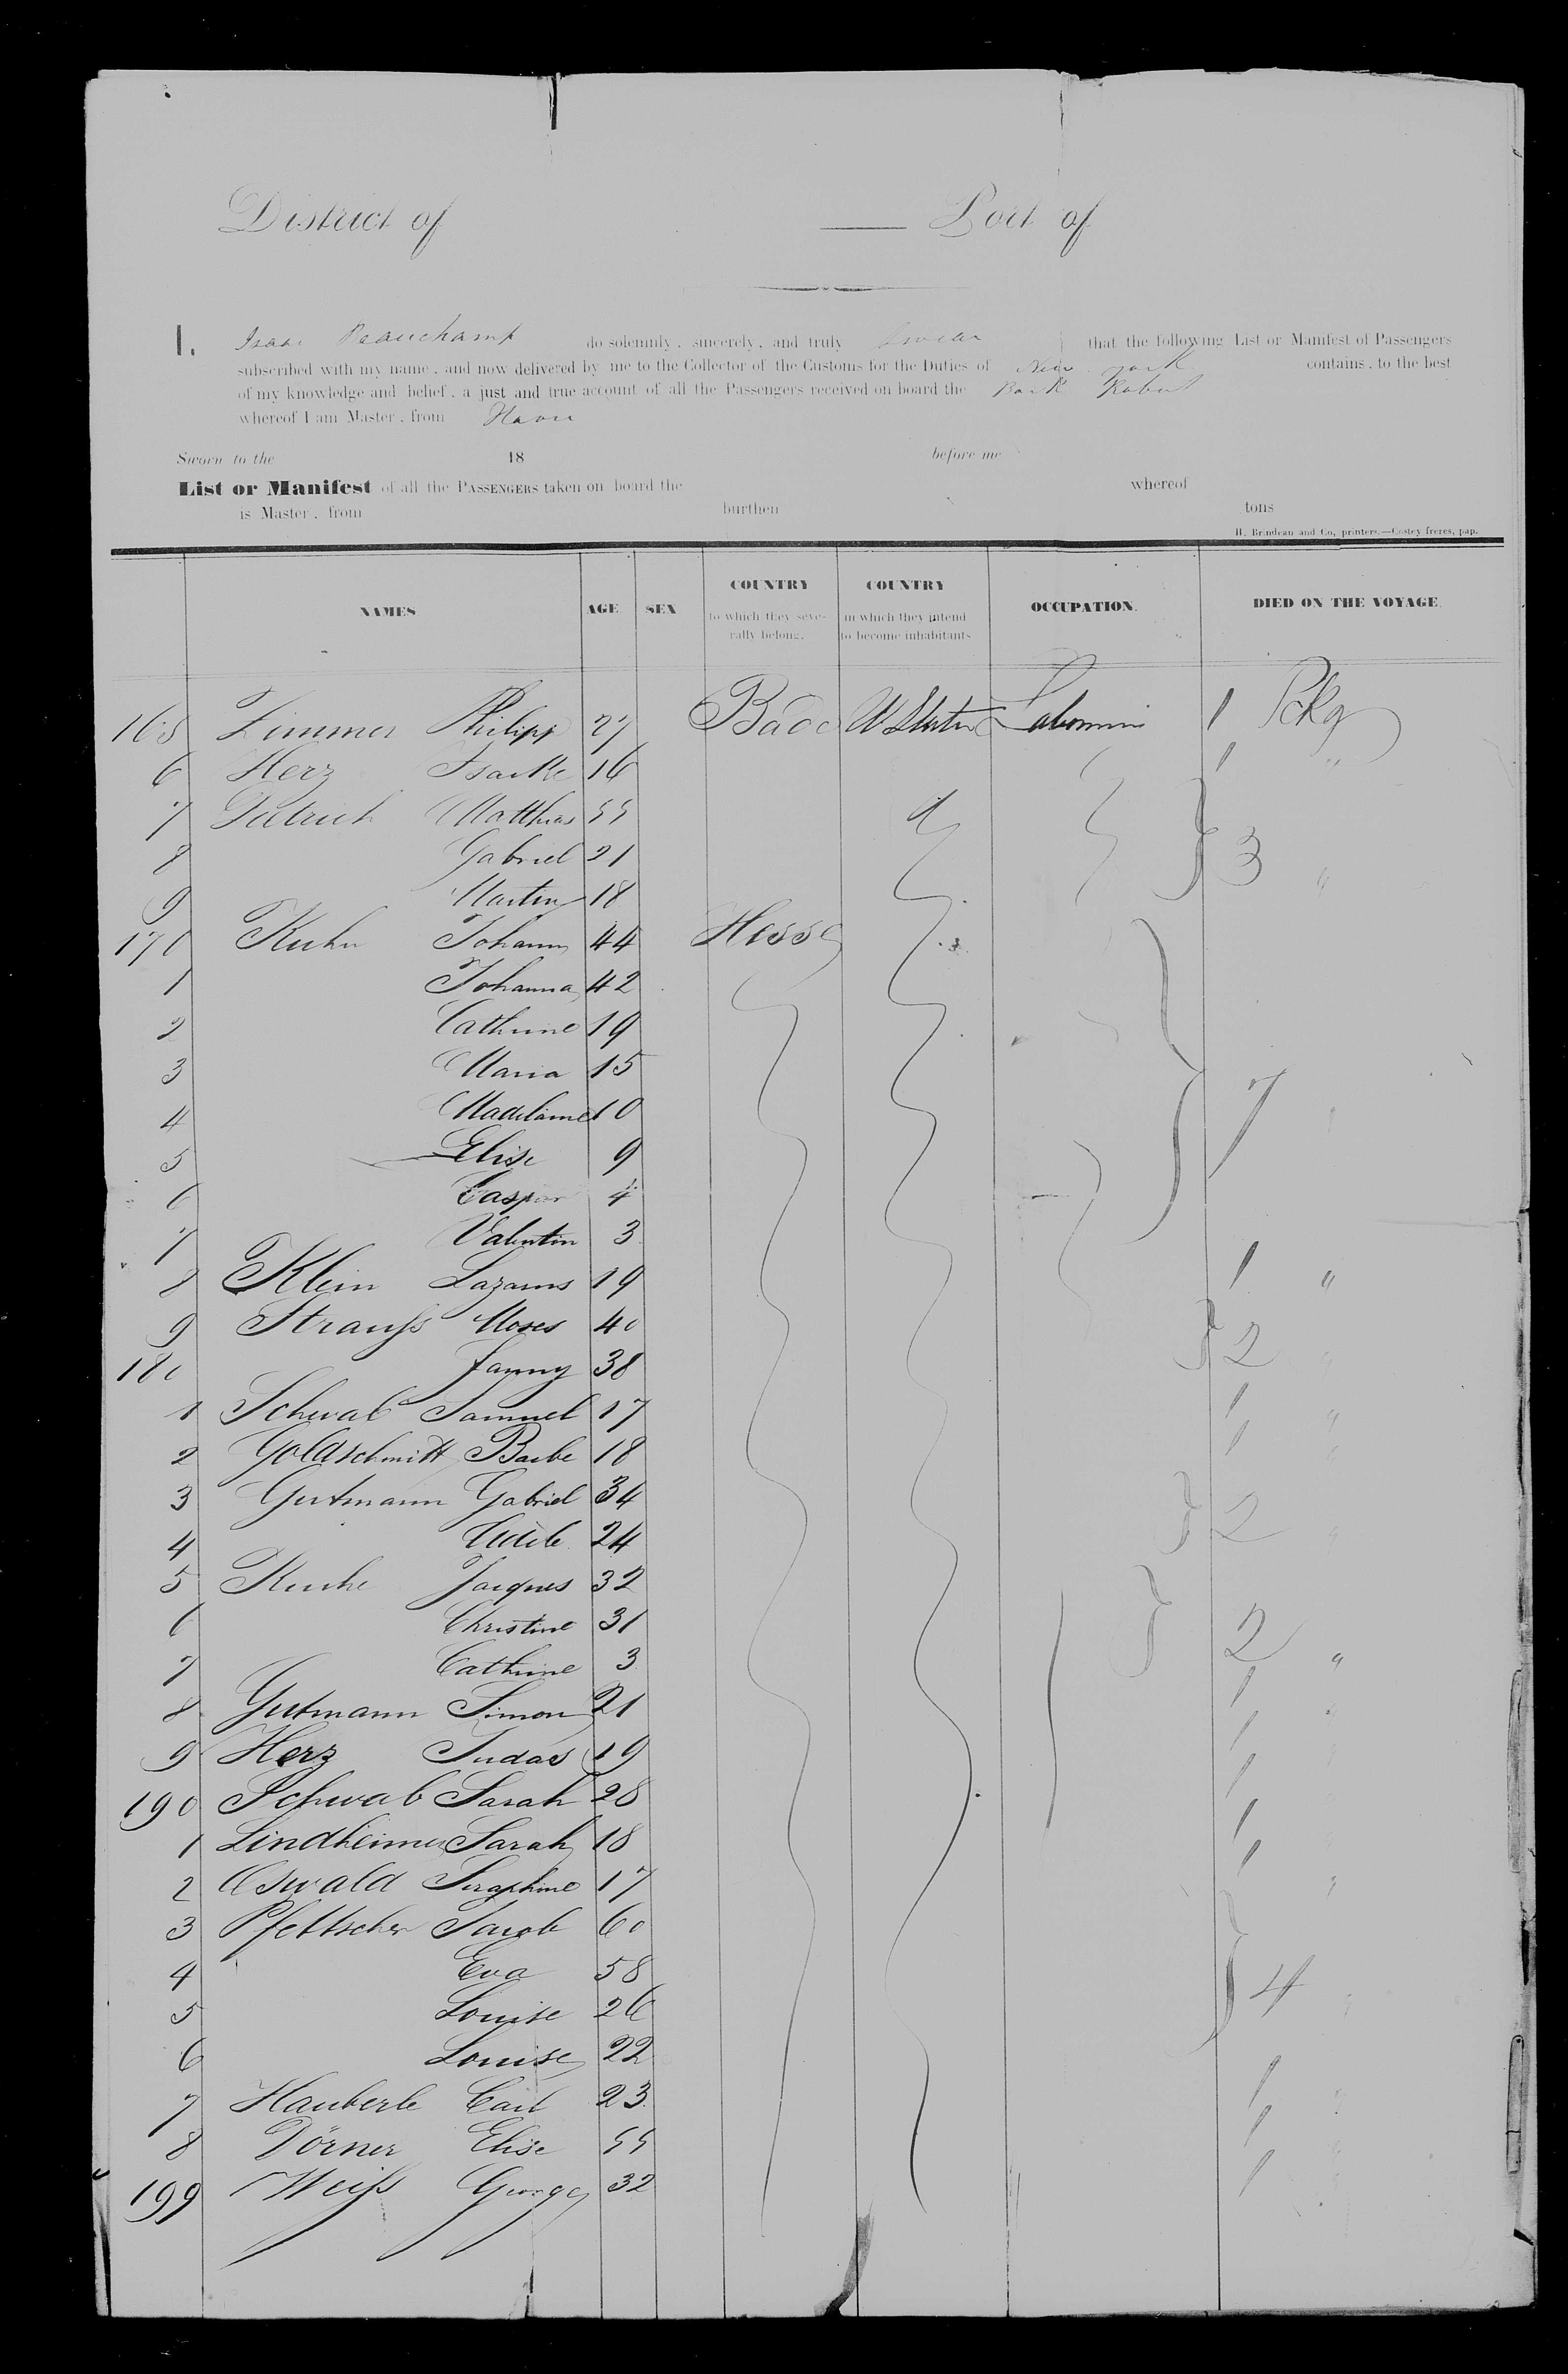 District of ___ Port of
I. Isaac Beauchamp do solemnly, sincerely, and truly swear that the following List or Manifest of Passengers
subscribed with my name, and now delivered by me to the Collector of the Customs for the Duties of New York contains, to the best
of my knowledge and belief, a just and true account of all the Passengers received on board the Bark Robert
whereof I am Master, from Havre
Sworn to the 18 before me
List or Manifest of all the PASSENGERS taken on board the whereof
is Master, from burthen tons
H. Brindeau and Co, printers.—Costey freres, pap.
NAMES AGE SEX COUNTRY to which they severally belong. COUNTRY in which they intend to become inhabitants OCCUPATION. DIED ON THE VOYAGE.
165 Zimmer Philipp 27 Bade U States 1 Pckg
6 Herz 16 1 "
7 Matthias 55
8 Gabriel 21 3 "
9 Martin 18
170 Kuhn Johann 44 Hesse
1 Johanna 42
2 Cathrine 19
3 Maria 15
4 Madelaine 10 7
5 Elise 9
6 Caspar 4
7 Valentin 3
8 Klein Lazarus 19 1 "
9 Strauss Moses 40
180 Fanny 38 2 "
1 Schwab Samuel 17 1 "
2 Goldschmitt Barbe 18 1 "
3 Gutmann Gabriel 34
4 Adele 24 2 "
5 Jacques 32
6 Christine 31 2 "
7 Cathrine 3
8 Gutmann Simon 21 1 "
9 Herz Judas 19 1
190 Schwab Sarah 28 1
1 Lindheimer Sarah 18 1
2 Oswald Seraphine 17 1 "
3 Pfettscher Jacob 60
4 Eva 58
5 Louise 26 4 "
6 Louise 22
7 Hauberle Carl 23 1 "
8 Dörner Elise 55 1 "
199 Weiss George 32 1 "